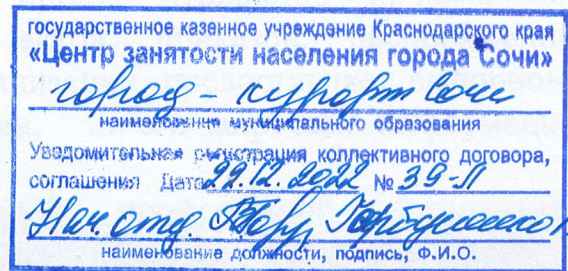 государственное казенное учреждение Краснодарского края
«Центр занятости населения города Сочи»
город-курорт Сочи
наименование муниципального образования
Уведомительная регистрация коллективного договора,
соглашения Дата 22.12.2022 № 39-П
Нач. отд.
наименование должности, подпись, Ф.И.О.